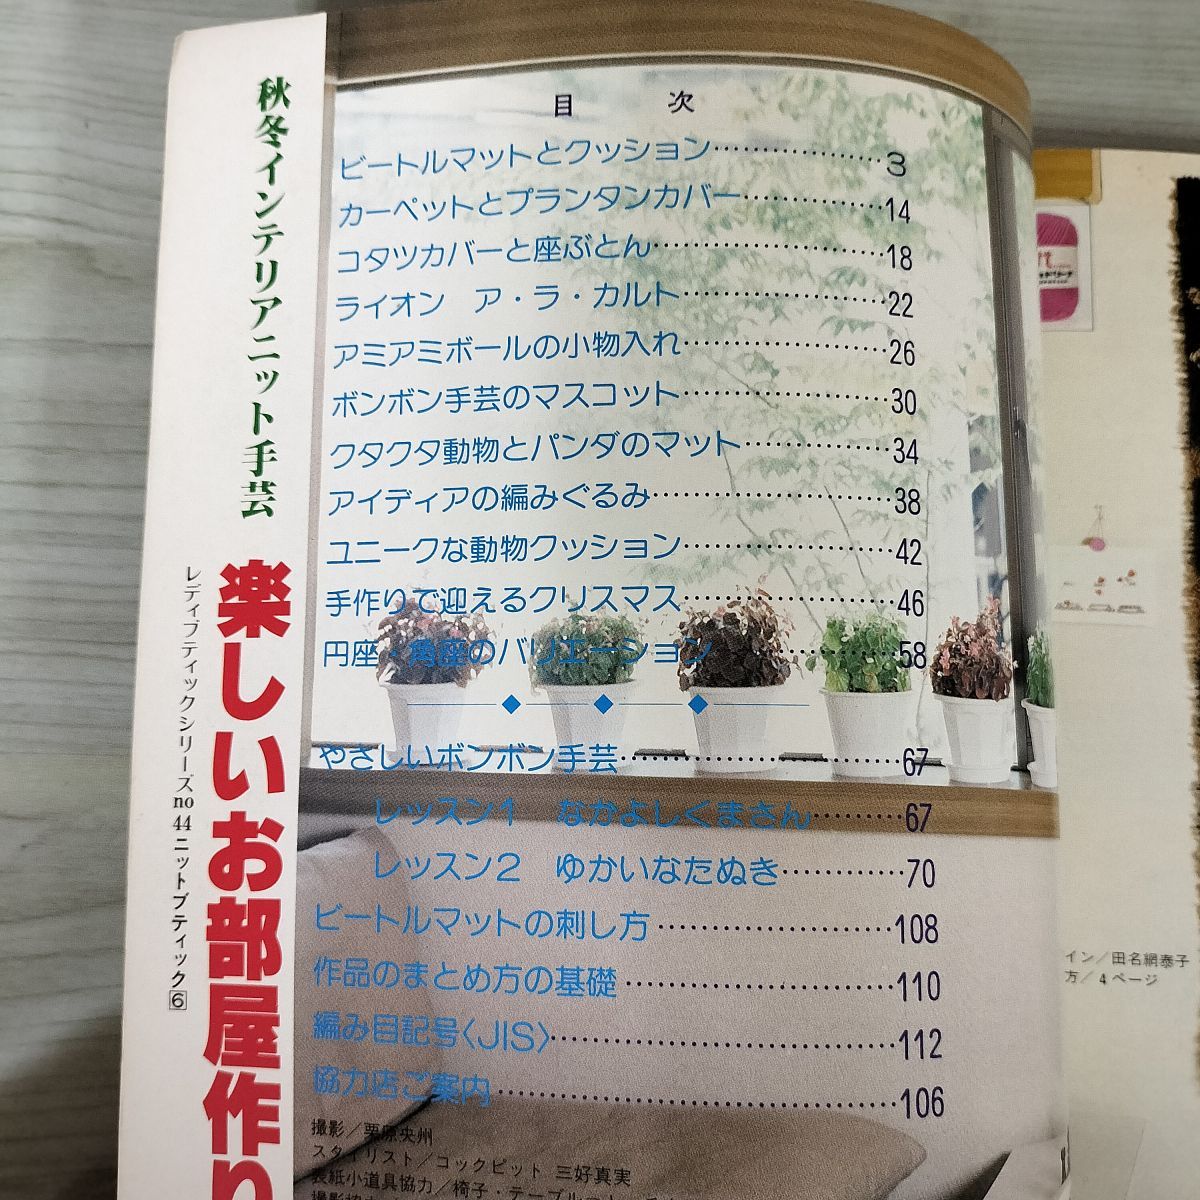 秋冬インテリアニット手芸
楽しいお部屋作り
レディブティックシリーズno44ニットブティック6
目 次
ビートルマットとクッション………………3
カーペットとプランタンカバー……………14
コタツカバーと座ぶとん……………………18
ライオン ア・ラ・カルト…………………22
アミアミボールの小物入れ…………………26
ボンボン手芸のマスコット…………………30
クタクタ動物とパンダのマット……………34
アイディアの編みぐるみ……………………38
ユニークな動物クッション…………………42
手作りで迎えるクリスマス…………………46
円座・角座のバリエーション………………58
やさしいボンボン手芸………………………67
レッスン1 なかよしくまさん………67
レッスン2 ゆかいなたぬき…………70
ビートルマットの刺し方……………………108
作品のまとめ方の基礎………………………110
編み目記号〈JIS〉……………………………112
協力店ご案内…………………………………106
撮影／栗原央州
スタイリスト／コックピット 三好真実
表紙小道具協力／椅子・テーブル
イン／田名網泰子
方／4ページ